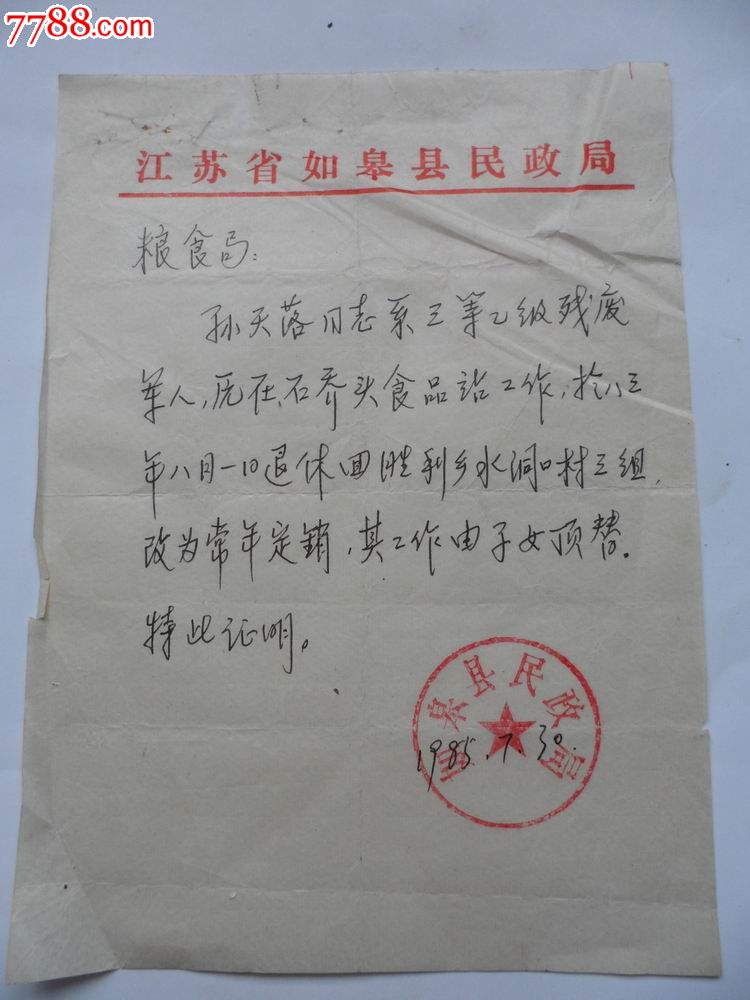 7788.com
江苏省如皋县民政局
粮食局:
孙天落同志系三等乙级残废
军人,原在石乔头食品站工作,於八三
年八月一日退休回胜利乡水洞口村三组,
改为常年定销,其工作由子女顶替。
特此证明。
如皋县民政局
1985.7.30.